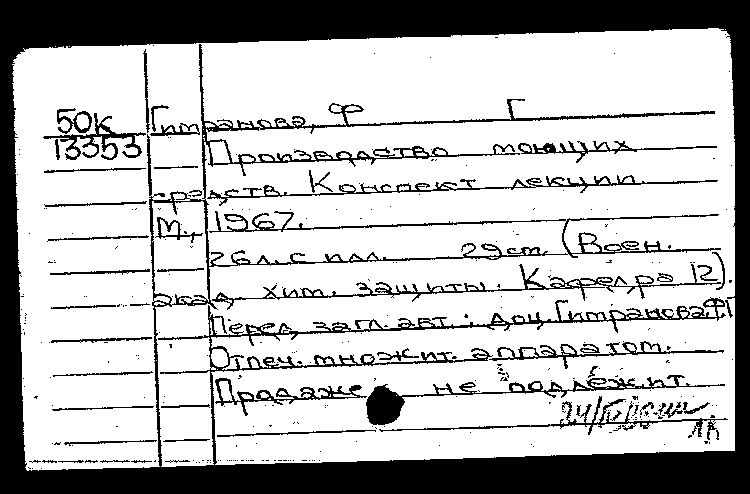 50к Гитранова, Ф Г
13353 Производство моющих
средств. Конспект лекции.
М., 1967.
26 л. с илл. 29 см. (Воен.
акад. хим. защиты. Кафедра 12).
Перед загл. авт.: доц. Гитранова Ф.Г
Отпеч. множит. аппаратом.
Продаже не подлежит.